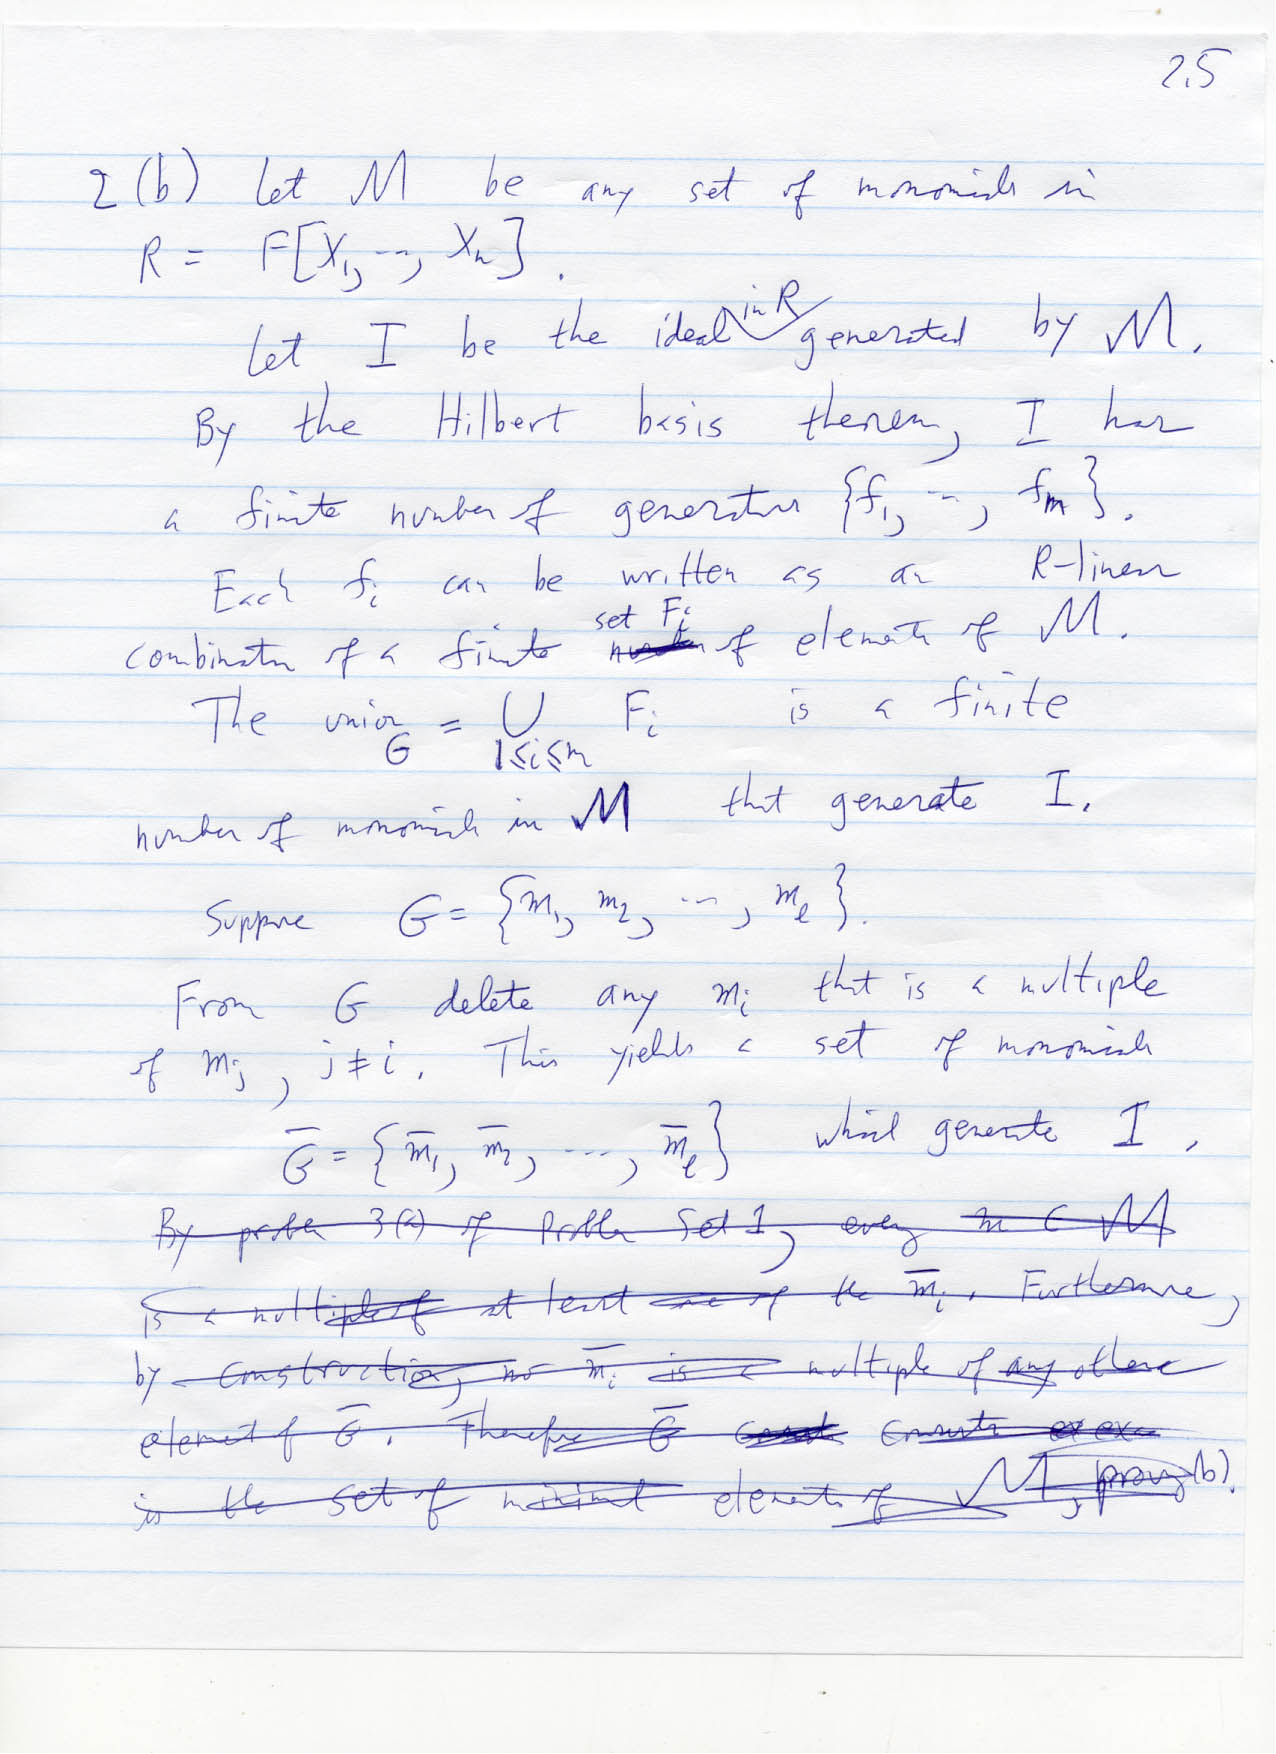 2.5
2(b) Let M be any set of monomials in
R = F[X₁, ..., Xₙ].
Let I be the ideal in R generated by M.
By the Hilbert basis theorem, I has
a finite number of generators {f₁, .., fₘ}.
Each fᵢ can be written as an R-linear
combination of a finite set Fᵢ of elements of M.
The union G = ⋃ Fᵢ is a finite
1≤i≤m
number of monomials in M that generate I.
Suppose G = {m₁, m₂, ..., mₑ}.
From G delete any mᵢ that is a multiple
of mⱼ, j ≠ i. This yields a set of monomials
G̅ = {m̅₁, m̅₂, ..., m̅ₑ} which generate I.
By problem 3(a) of Problem Set 1, every m ∈ M
is a multiple of at least one of the m̅ᵢ. Furthermore,
by construction, no m̅ᵢ is a multiple of any other
element of G̅. Therefore G̅ consists
is the set of minimal elements of M, proving (b).